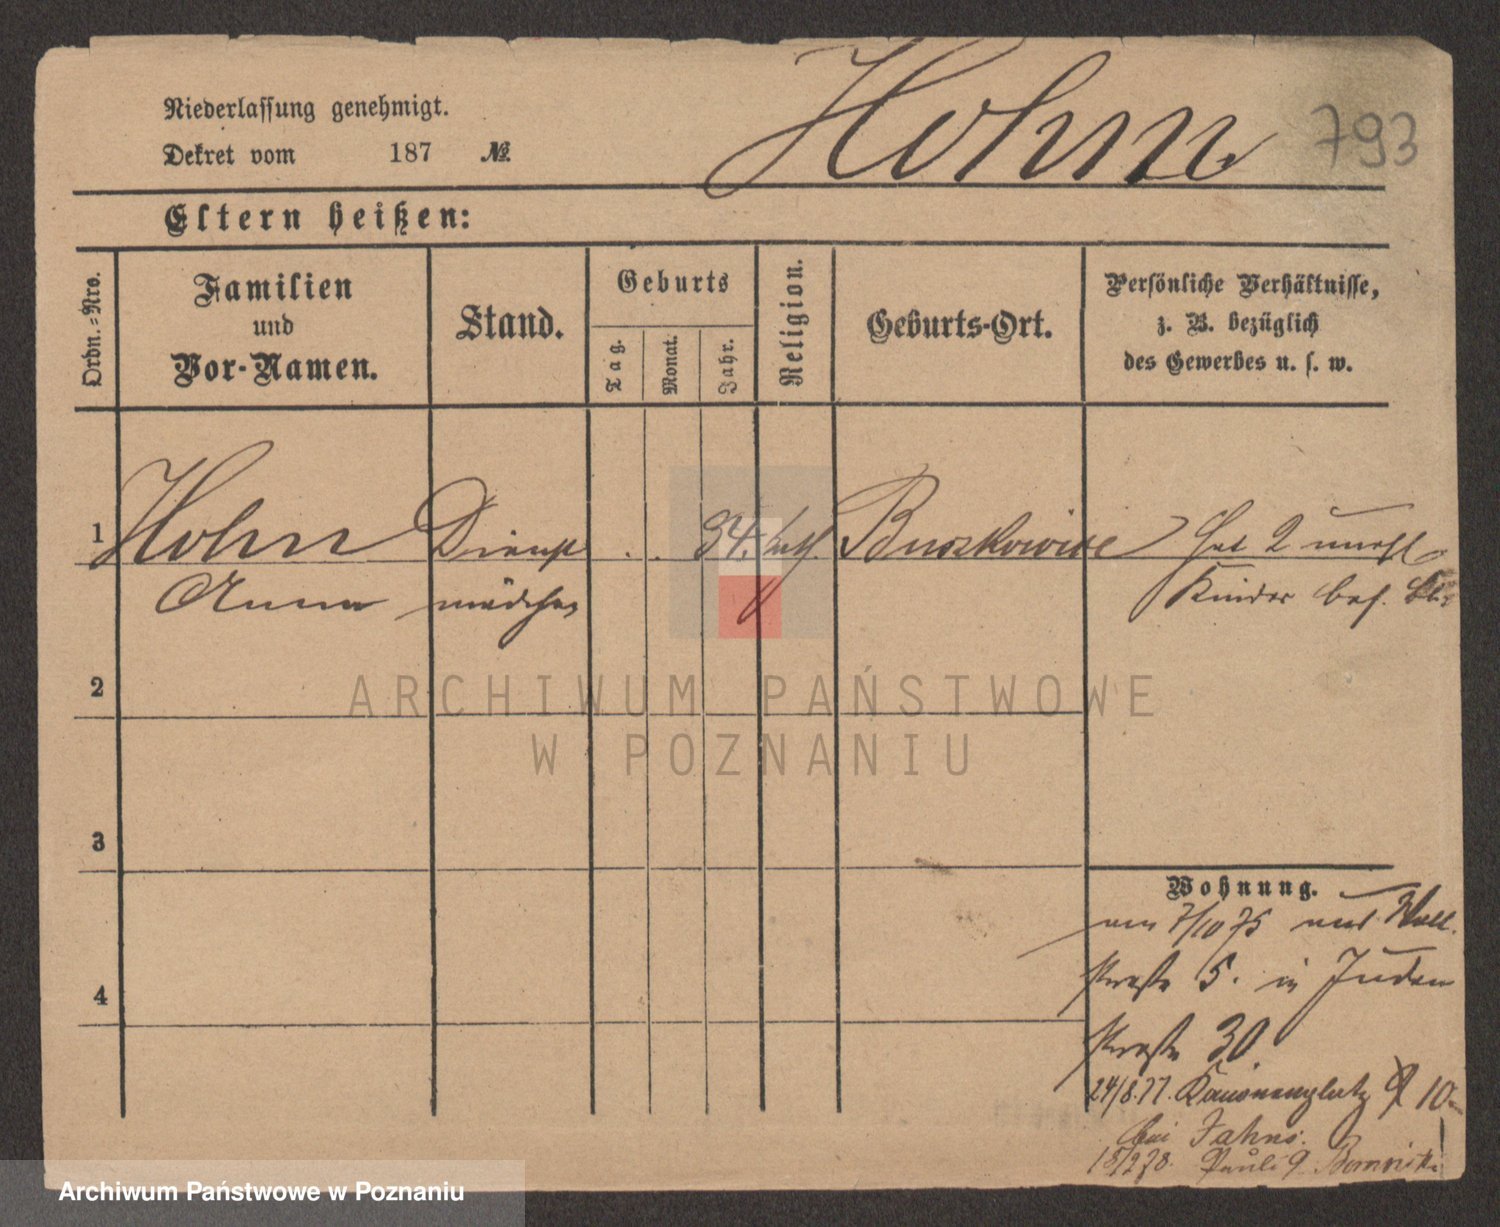 Niederlassung genehmigt.
Dekret vom 187 №
Hohn
793
Eltern heißen:
Ordn.=Nro.
Familien
und
Vor-Namen.
Stand.
Geburts
Tag.
Monat.
Jahr.
Religion.
Geburts-Ort.
Persönliche Verhältnisse,
z. B. bezüglich
des Gewerbes u. s. w.
1 Hohn Dienst . . 34. kath. Hat 2 unehl
Anna mädchen Kinder
2
3
4
Wohnung.
am 7/10 75 Wall
straße 5. in Juden
straße 30.
24/8.77. Kanonenplatz 10
bei Jahns.
18/2 78. Pauli 9
ARCHIWUM PAŃSTWOWE
W POZNANIU
Archiwum Państwowe w Poznaniu